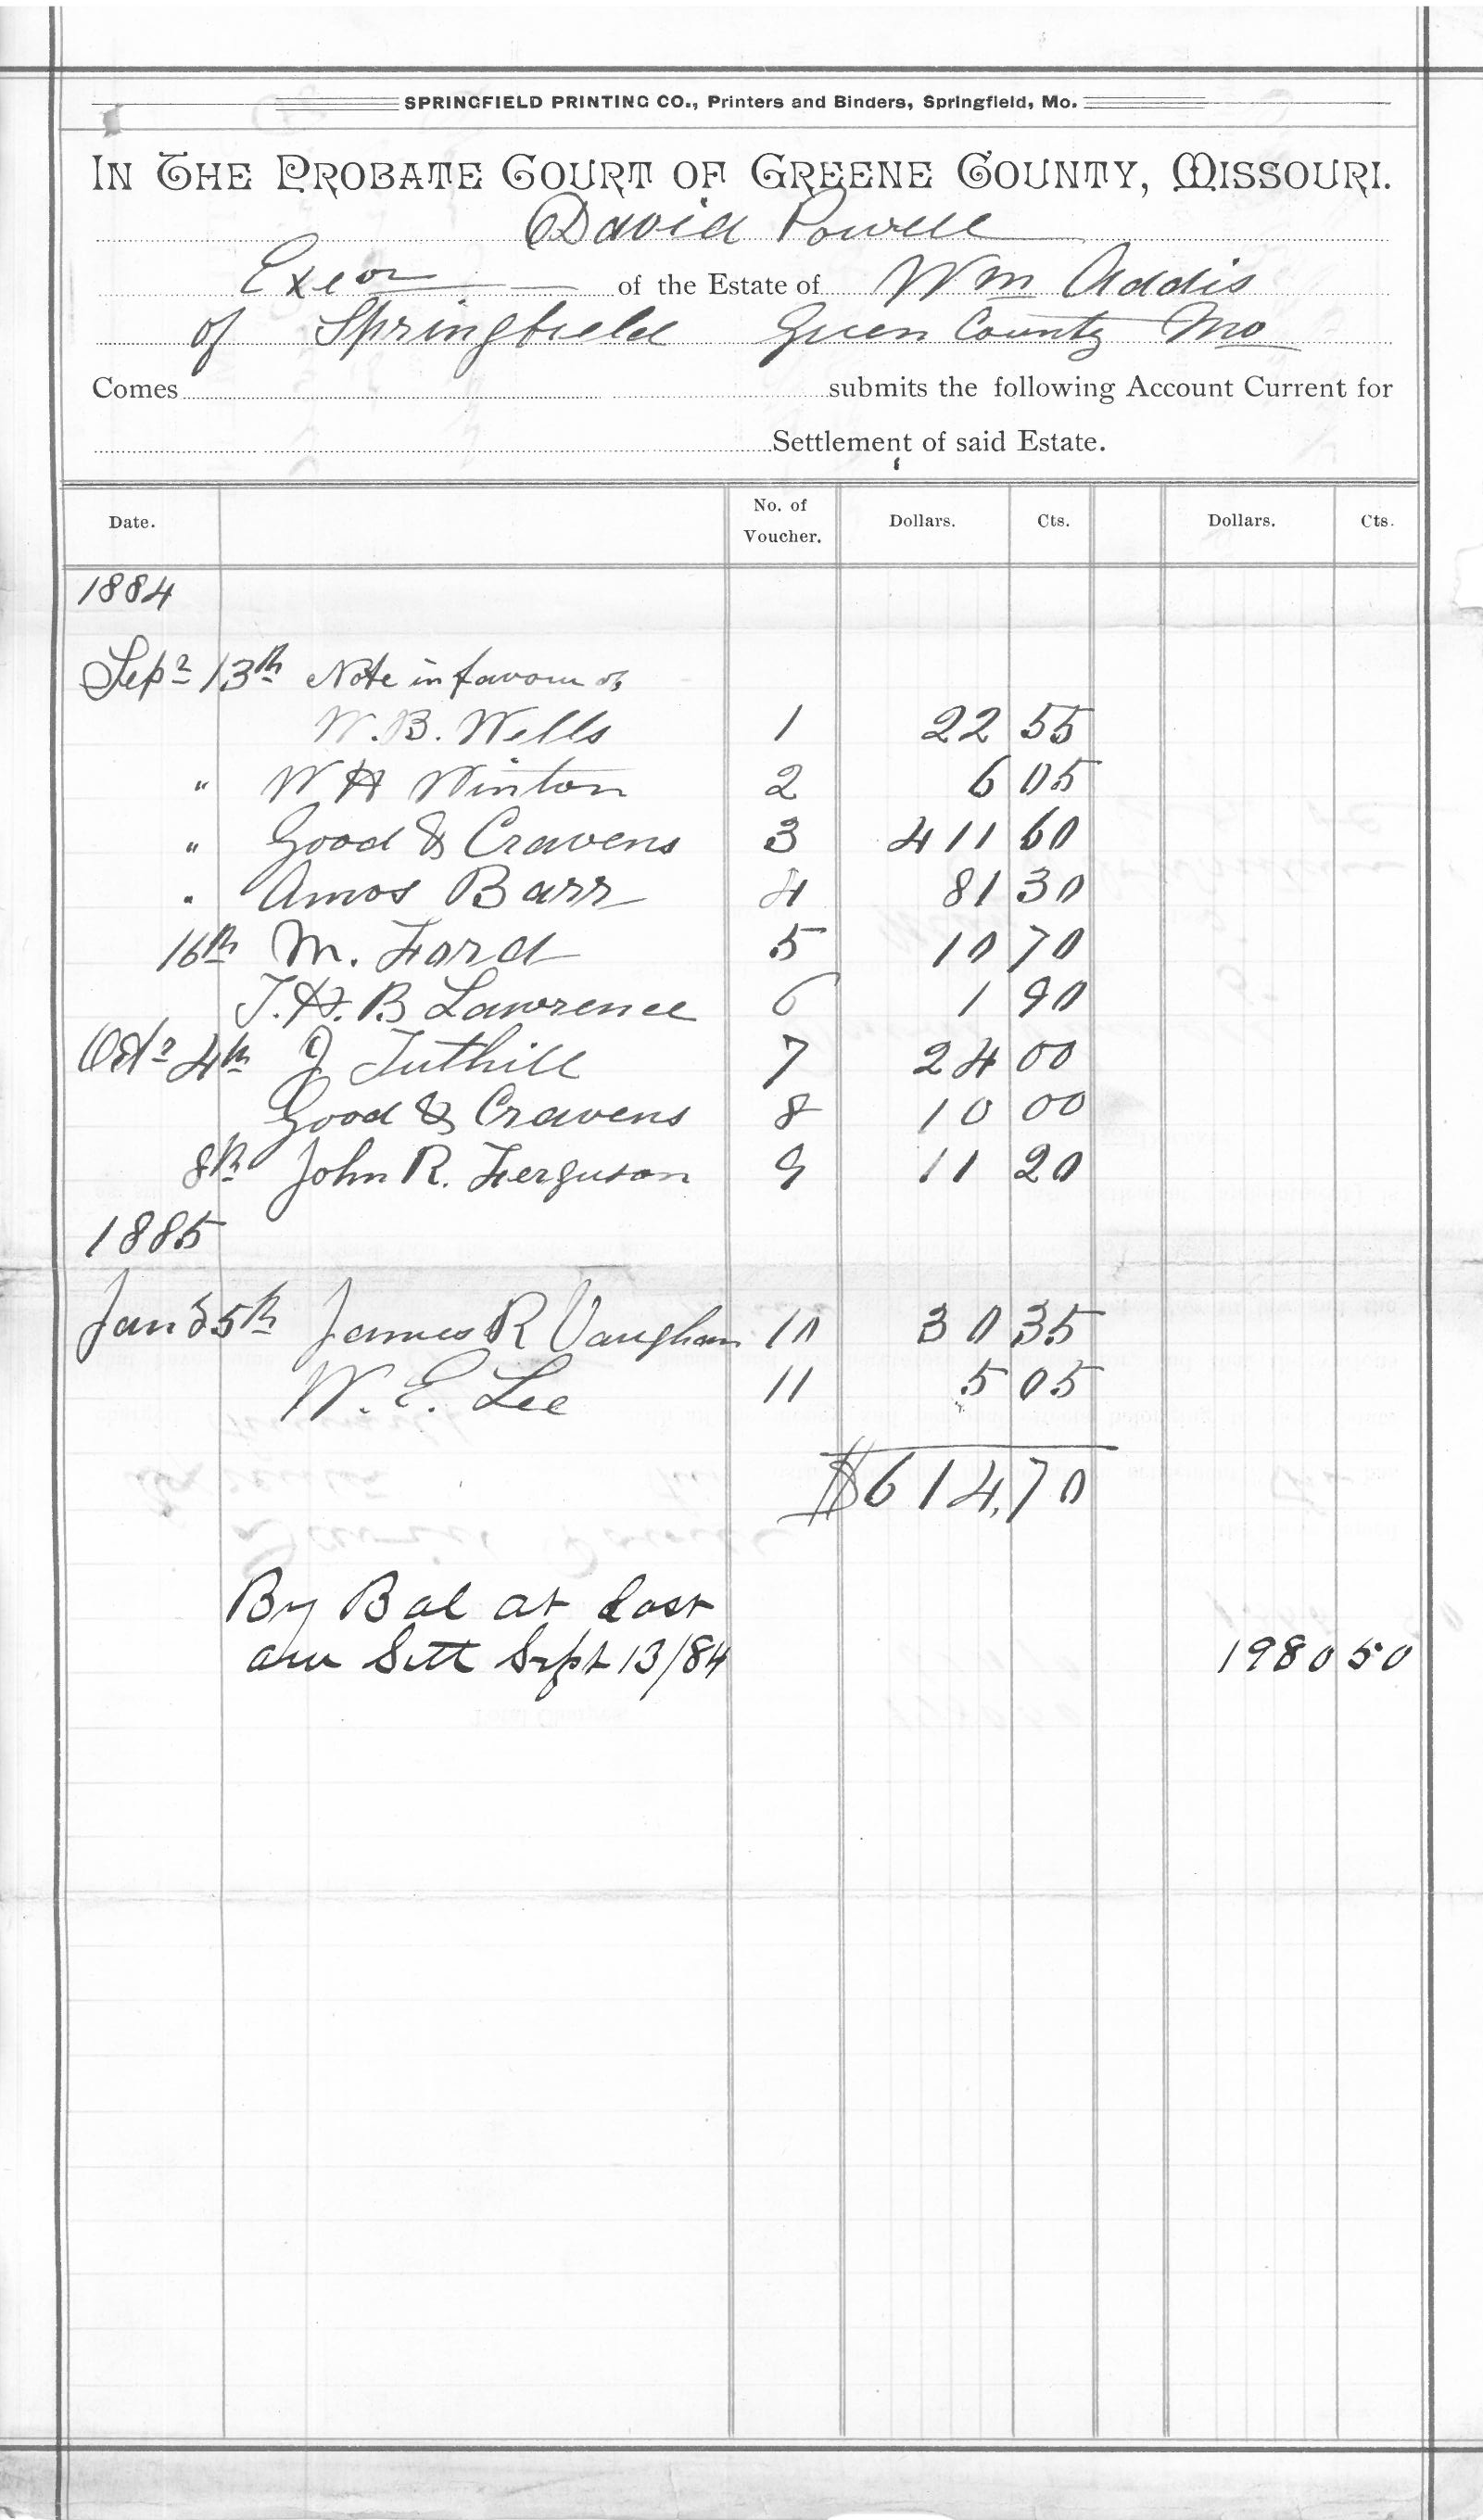 SPRINGFIELD PRINTING CO., Printers and Binders, Springfield, Mo.
IN THE PROBATE COURT OF GREENE COUNTY, MISSOURI.
David Powell
Exeor of the Estate of Wm Addis
of Springfield Green County Mo
Comes submits the following Account Current for
Settlement of said Estate.
Date. No. of Voucher. Dollars. Cts. Dollars. Cts.
1884
Sepr 13th Note in favour of
W. B. Wells 1 22 55
" W H Winton 2 6 05
" Good & Cravens 3 411 60
" Amos Barr 4 81 30
16th M. Ford 5 10 70
T. H. B Lawrence 6 1 90
Octr 4th J Tuthill 7 24 00
Good & Cravens 8 10 00
8th John R. Ferguson 9 11 20
1885
Jan 5th James R Vaughan 10 30 35
W. E. Lee 11 5 05
$614.70
By Bal at last
Sett Sept 13/84 1980 50